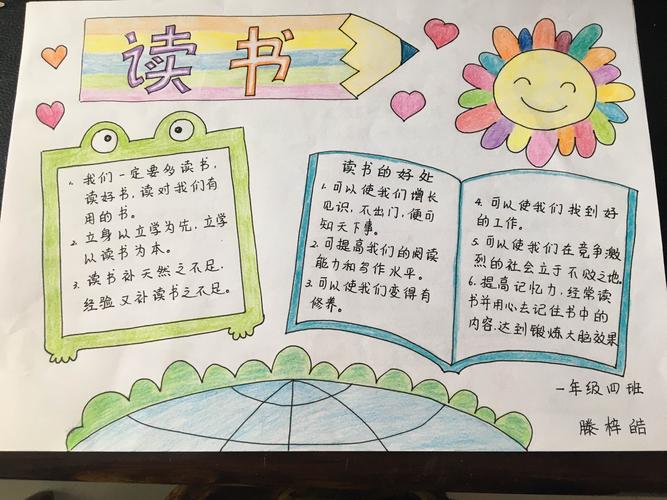 读书
1. 我们一定要多读书,
读好书,读对我们有
用的书。
2. 立身以立学为先,立学
以读书为本。
3. 读书补天然之不足,
经验又补读书之不足。
读书的好处
1. 可以使我们增长
见识,不出门,便可
知天下事。
2. 可提高我们的阅读
能力和写作水平。
3. 可以使我们变得有
修养。
4. 可以使我们找到好
的工作。
5. 可以使我们在竞争激
烈的社会立于不败之地。
6. 提高记忆力,经常读
书并用心去记住书中的
内容,达到锻炼大脑效果
一年级四班
滕梓皓